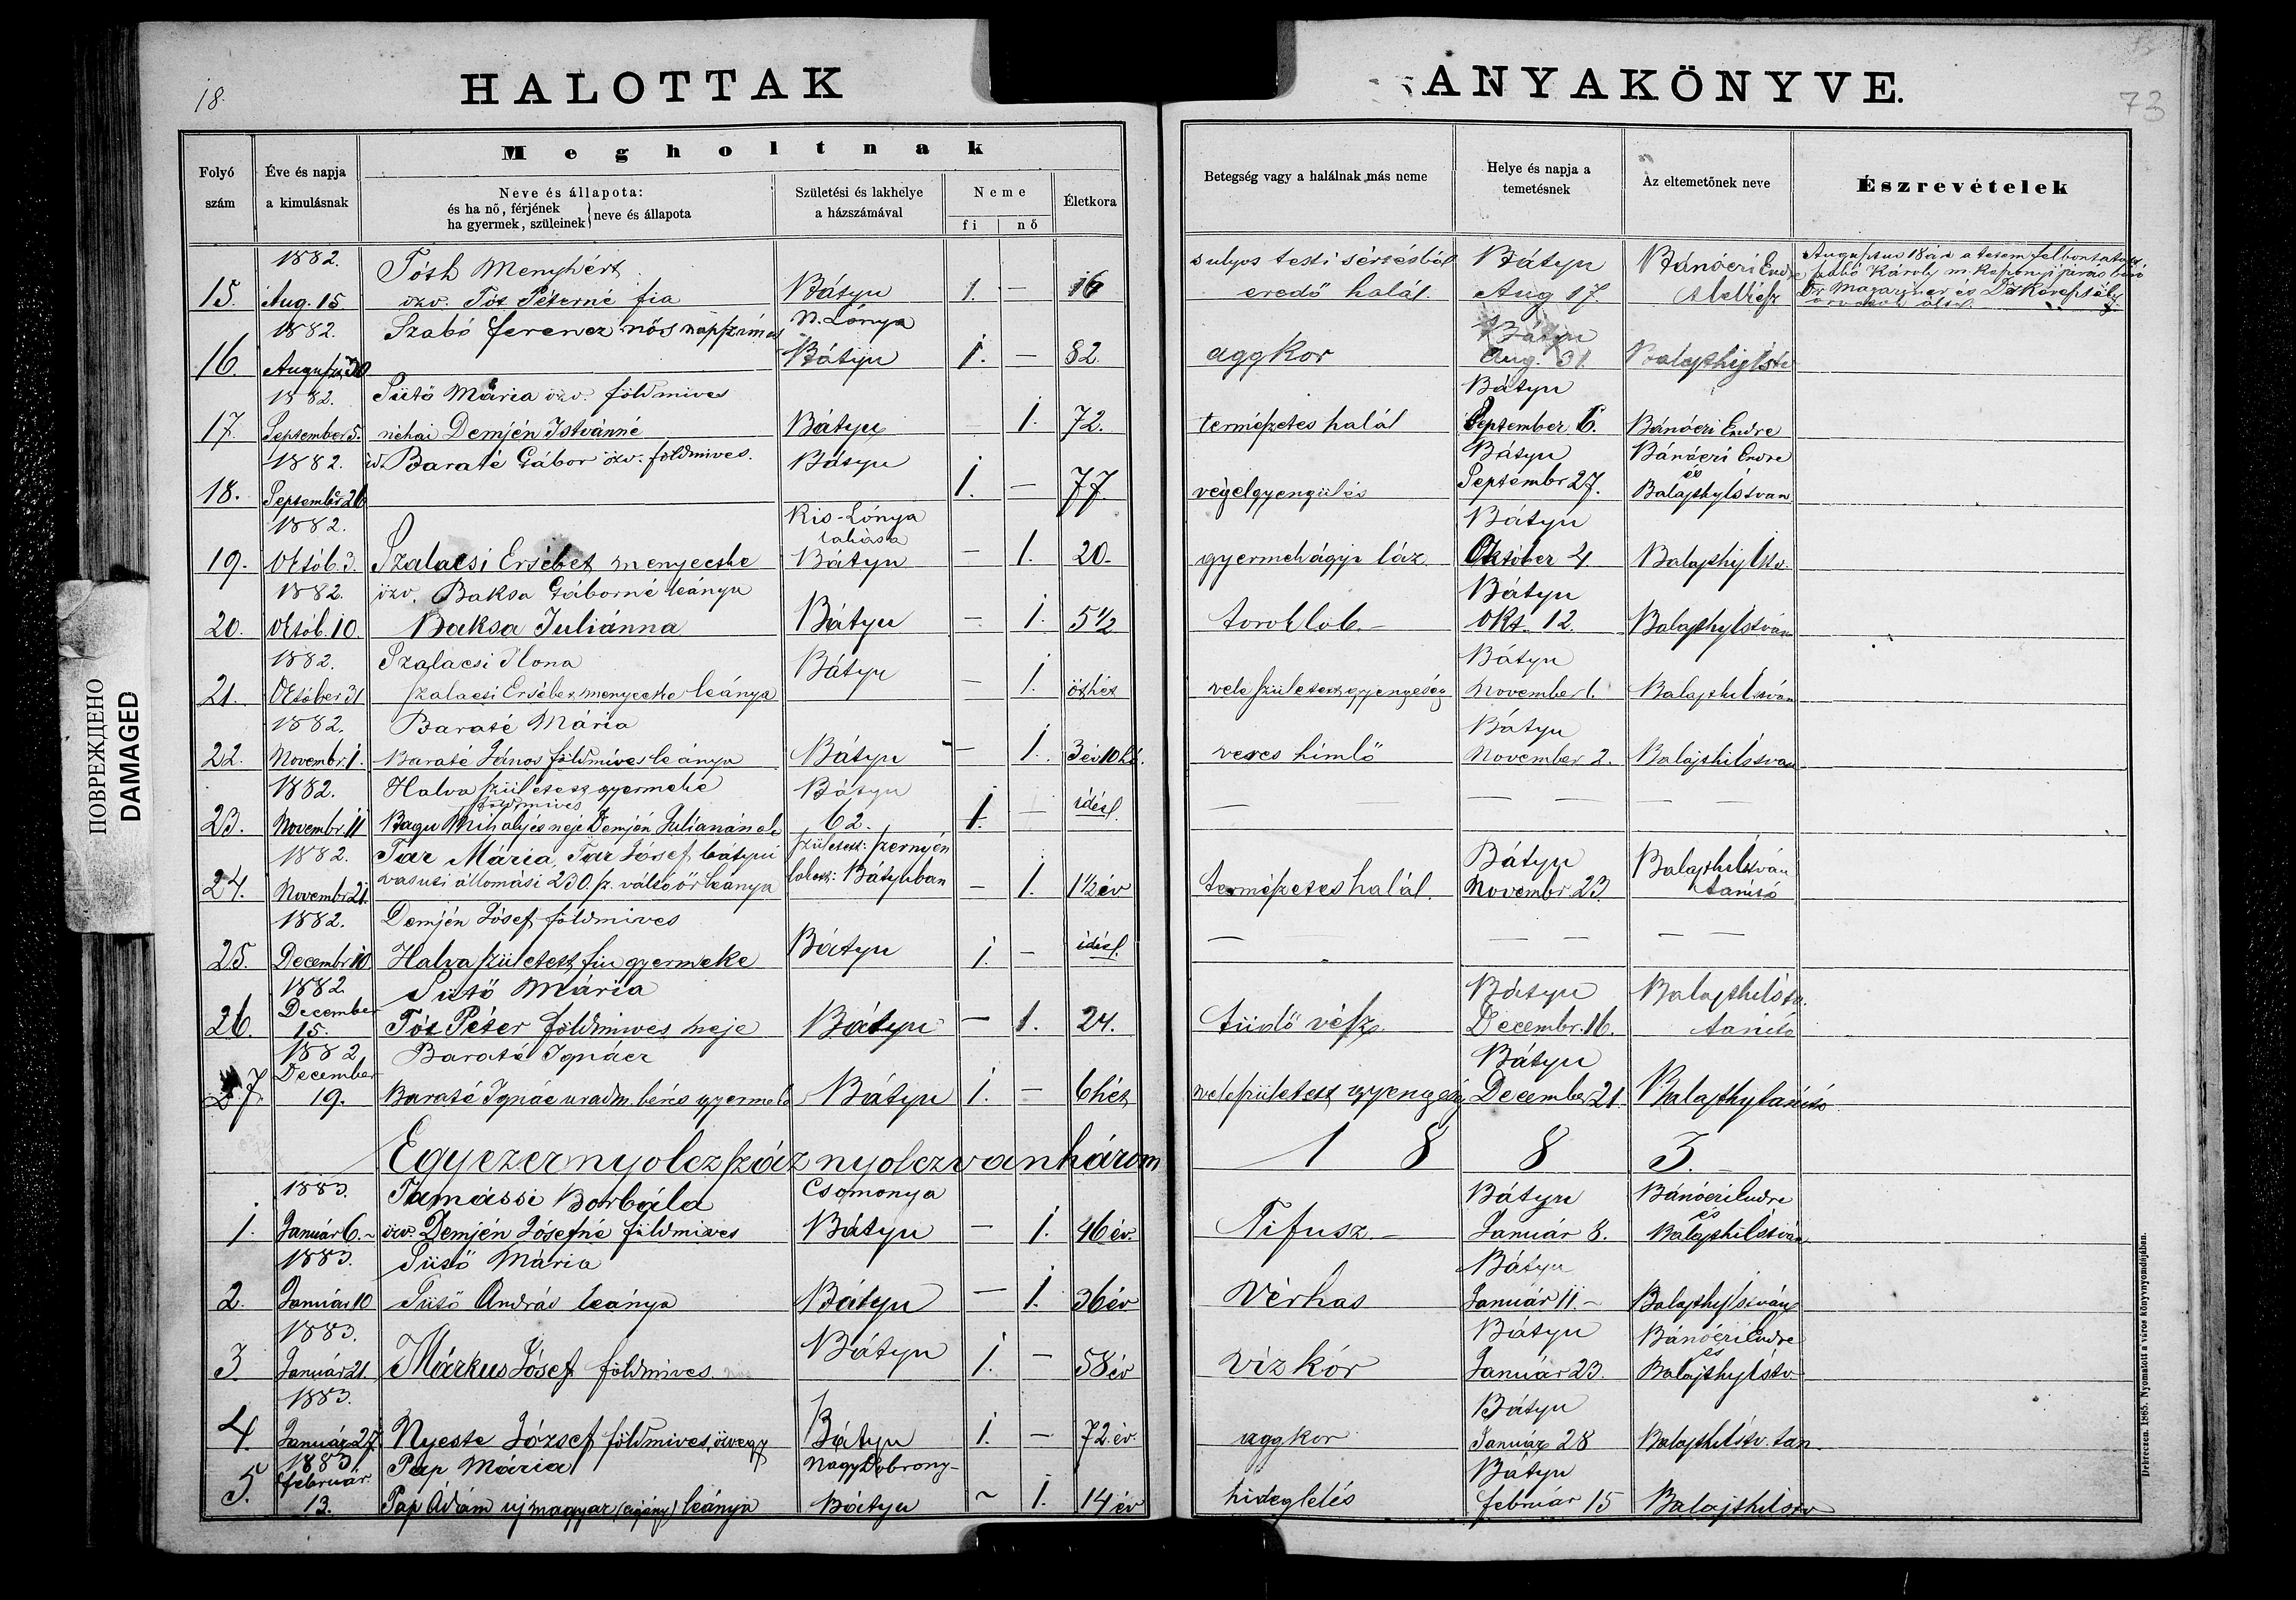 18.
HALOTTAK
ANYAKÖNYVE.
73
Megholtnak
Folyó szám
Éve és napja a kimulásnak
Neve és állapota:
és ha nő, férjének
ha gyermek, szüleinek } neve és állapota
Születési és lakhelye a házszámával
Neme
fi
nő
Életkora
Betegség vagy a halálnak más neme
Helye és napja a temetésnek
Az eltemetőnek neve
Észrevételek
1882. Tóth Menyhért sulyos testi sértésből Bátyu Bánóczi Endre
15. Aug. 15 özv. Tót Péterné fia Bátyu 1. — 16 eredő halál. Aug 17.
1882. Szabó Ferencz nős napszámos N. Lónya Bátyu
16. August 30 Bátyu 1. — 82. aggkor Aug. 31. Balajthy Istv
1882. Sütő Mária özv. földmives Bátyu
17. September 5. néhai Demjén Istvánné Bátyu 1. 72. természetes halál September 6. Bánóczi Endre
1882. id. Baraté Gábor özv. földmives. Bátyu Bátyu Bánóczi Endre
és
18. September 26 1. — 77 végelgyengülés Septembr 27. Balajthy István
1882. Kis-Lónya Bátyu
lakása
19. Októb. 3. Szalacsi Ersébet menyecske Bátyu — 1. 20. gyermekágyi láz Október 4 Balajthy Istv.
1882. özv. Baksa Gáborné leánya Bátyu
20. Októb. 10. Baksa Juliánna Bátyu — 1. 5 1/2 toroklob. — Okt. 12. Balajthy István
1882. Szalacsi Ilona Bátyu Bátyu
21. Október 31 Szalacsi Ersébet menyecske leánya — 1. öt hét vele született gyengeség November 1. Balajthi István
1882. Baraté Mária Bátyu
22. Novembr. 1. Baraté János földmives leánya Bátyu — 1. 3 év 10 hó. veres himlő November 2. Balajthi István
1882. Halva született gyermeke Bátyu
földmives
23. Novembr. 11 Bagu Mihály és neje Demjén Juliánának 62. 1. — idétl. — — — — —
1882. Tar Mária, Tar József bátyui született: Szernyén Bátyu Balajthi István
24. Novembr 21. vasuti állomási 230. sz. váltóőr leánya lakott: Bátyuban — 1. 1 1/2 év természetes halál. Novembr 23. tanitó
1882. Demjén Jósef földmives
25. Decembr 10. Halva született fiu gyermeke Bátyu 1. — idétl. — — — — —
1882. Sütő Mária Bátyu Balajthi Istv.
26. December 15. Tót Péter földmives neje Bátyu — 1. 24. tüdő vész. Decembr. 16. tanitó
1882 Baraté Ignácz Bátyu
27 December 19. Baraté Ignác uradm. béres gyermeke Bátyu 1. — 6 hét veleszületett gyengeség December 21. Balajthy tanitó
Egyezernyolczszáz nyolczvanhárom 1 8 8 3.
1883. Tamássi Borbála Csomonya Bátyu Bánóczi Endre
és
1. Január 6. — özv. Demjén Jósefné földmives Bátyu — 1. 46 év. Tifusz. — Január 8. Balajthi István
1883. Sütő Mária Bátyu
2. Január 10 Sütő András leánya Bátyu — 1. 36 év Vérhas Január 11. — Balajthy István
1883. Bátyu Bátyu Bánóczi Endre
és
3 Január 21. Márkus Jósef földmives. 1. — 58 év vizkór Január 23. Balajthy Istv
1883. Bátyu
4. Január 27. Nyeste József földmives, özvegy Bátyu 1. — 72 év. aggkor Január 28 Balajthi Istv. tan.
1883. Pap Mária Nagy Dobrony- Bátyu
5. február. 13. Pap Ádám ujmagyar (czigány) leánya Bátyu ~ 1. 14 év hideglelés február 15 Balajthi Istv
ПОВРЕЖДЕНО
DAMAGED
Debreczen. 1865. Nyomatott a város könyvnyomdájában.